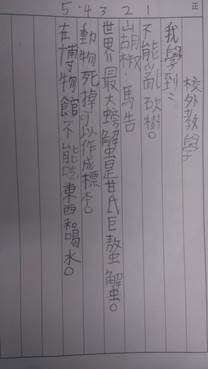 正
校外教學
我學到:
1 不能亂砍樹。
2 山胡椒 馬告
3 世界最大螃蟹是甘氏巨螯蟹。
4 動物死掉可以作成標本。
5 在博物館不能吃東西和喝水。